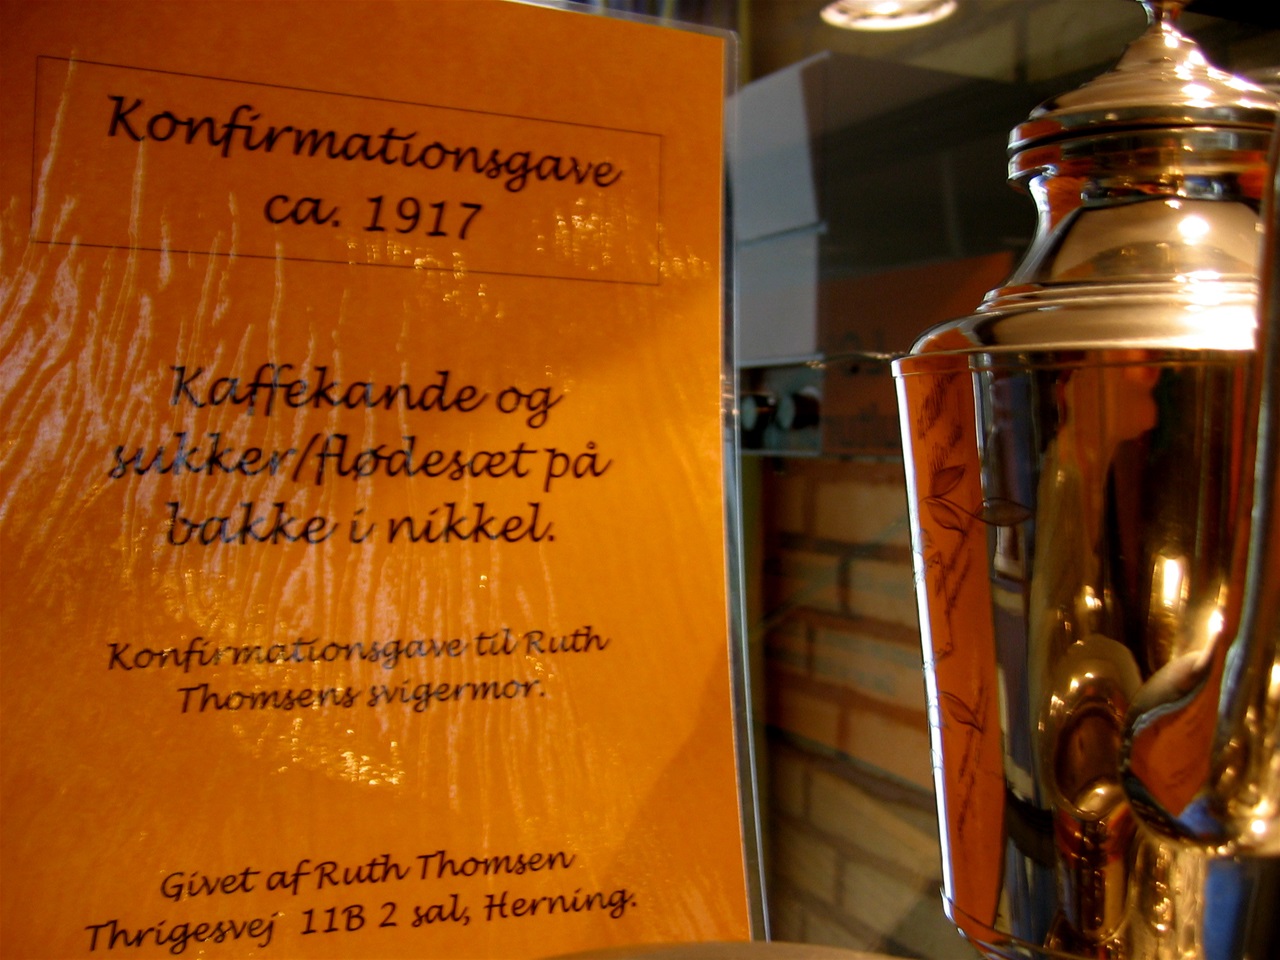 Konfirmationsgave
ca. 1917
Kaffekande og
sukker/flødesæt på
bakke i nikkel.
Konfirmationsgave til Ruth
Thomsens svigermor.
Givet af Ruth Thomsen
Thrigesvej 11B 2 sal, Herning.